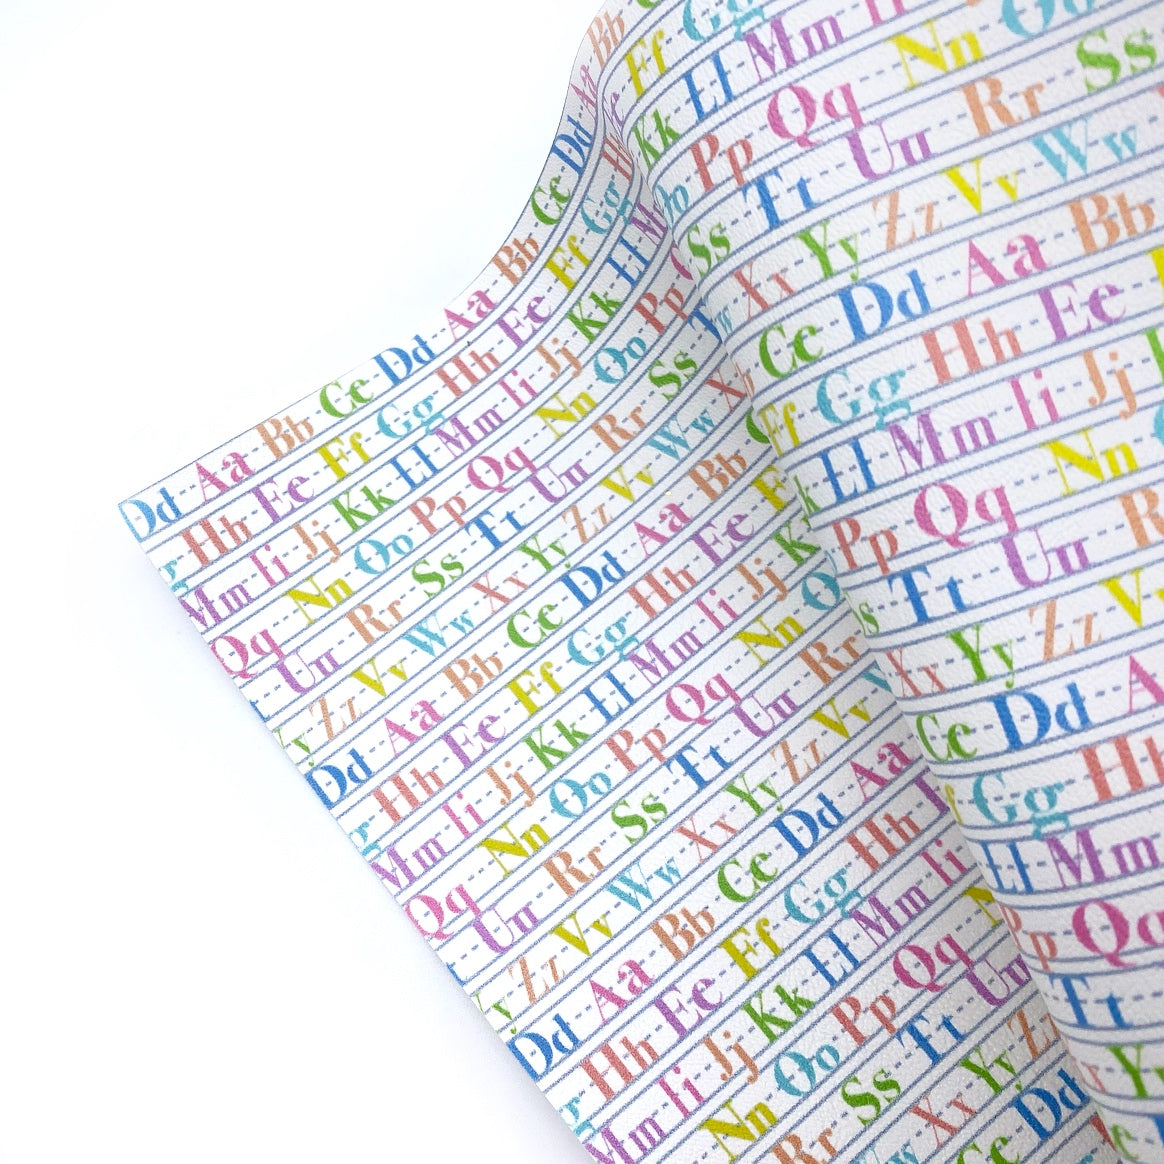 Dd Aa Bb Cc Dd Aa Bb Cc Dd Aa Bb
Hh Ee Ff Gg Hh Ee Ff Gg
Mm Ii Jj Kk Ll Mm Ii Jj Kk Ll
Qq Nn Oo Pp Qq Nn Oo Pp
Uu Rr Ss Tt Uu Rr Ss
Zz Vv Ww Xx Yy Zz Vv Ww
Dd Aa Bb Cc Dd Aa Bb
Hh Ee Ff Gg Hh Ee
Mm Ii Jj Kk Ll Mm Ii Jj
Qq Nn Oo Pp Qq Nn
Uu Rr Ss Tt Uu Rr
Zz Vv Ww Xx Yy Zz Vv
Dd Aa Bb Cc Dd Aa
Hh Ee Ff Gg Hh
Mm Ii Jj Kk Ll Mm Ii
Nn Oo Pp Qq
Rr Ss Tt Uu
Xx Yy Zz
Cc Dd
Ff Gg
Kk Ll Mm
Pp Qq Nn Oo
Tt Uu Rr Ss
Xx Yy Zz Vv Ww
Cc Dd Aa Bb
Ff Gg Hh Ee
Ll Mm Ii Jj
Pp Qq Nn
Tt Uu
Xx Yy Zz
Cc Dd
Gg Hh
Ll Mm
Qq
Tt